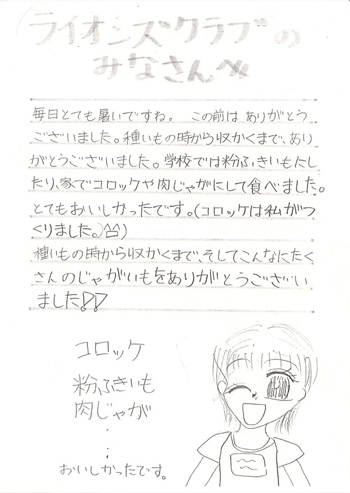 ライオンズクラブの
みなさんへ
毎日とても暑いですね。 この前は ありがとう
ございました。種いもの時から収かくまで、あり
がとうございました。学校では粉ふきいもにし
たり、家でコロッケや肉じゃがにして食べました。
とてもおいしかったです。(コロッケは私がつ
くりました。)
種いもの時から収かくまで、そしてこんなにたく
さんのじゃがいもをありがとうござい
ました!!
コロッケ
粉ふきいも
肉じゃが
・
・
おいしかったです。